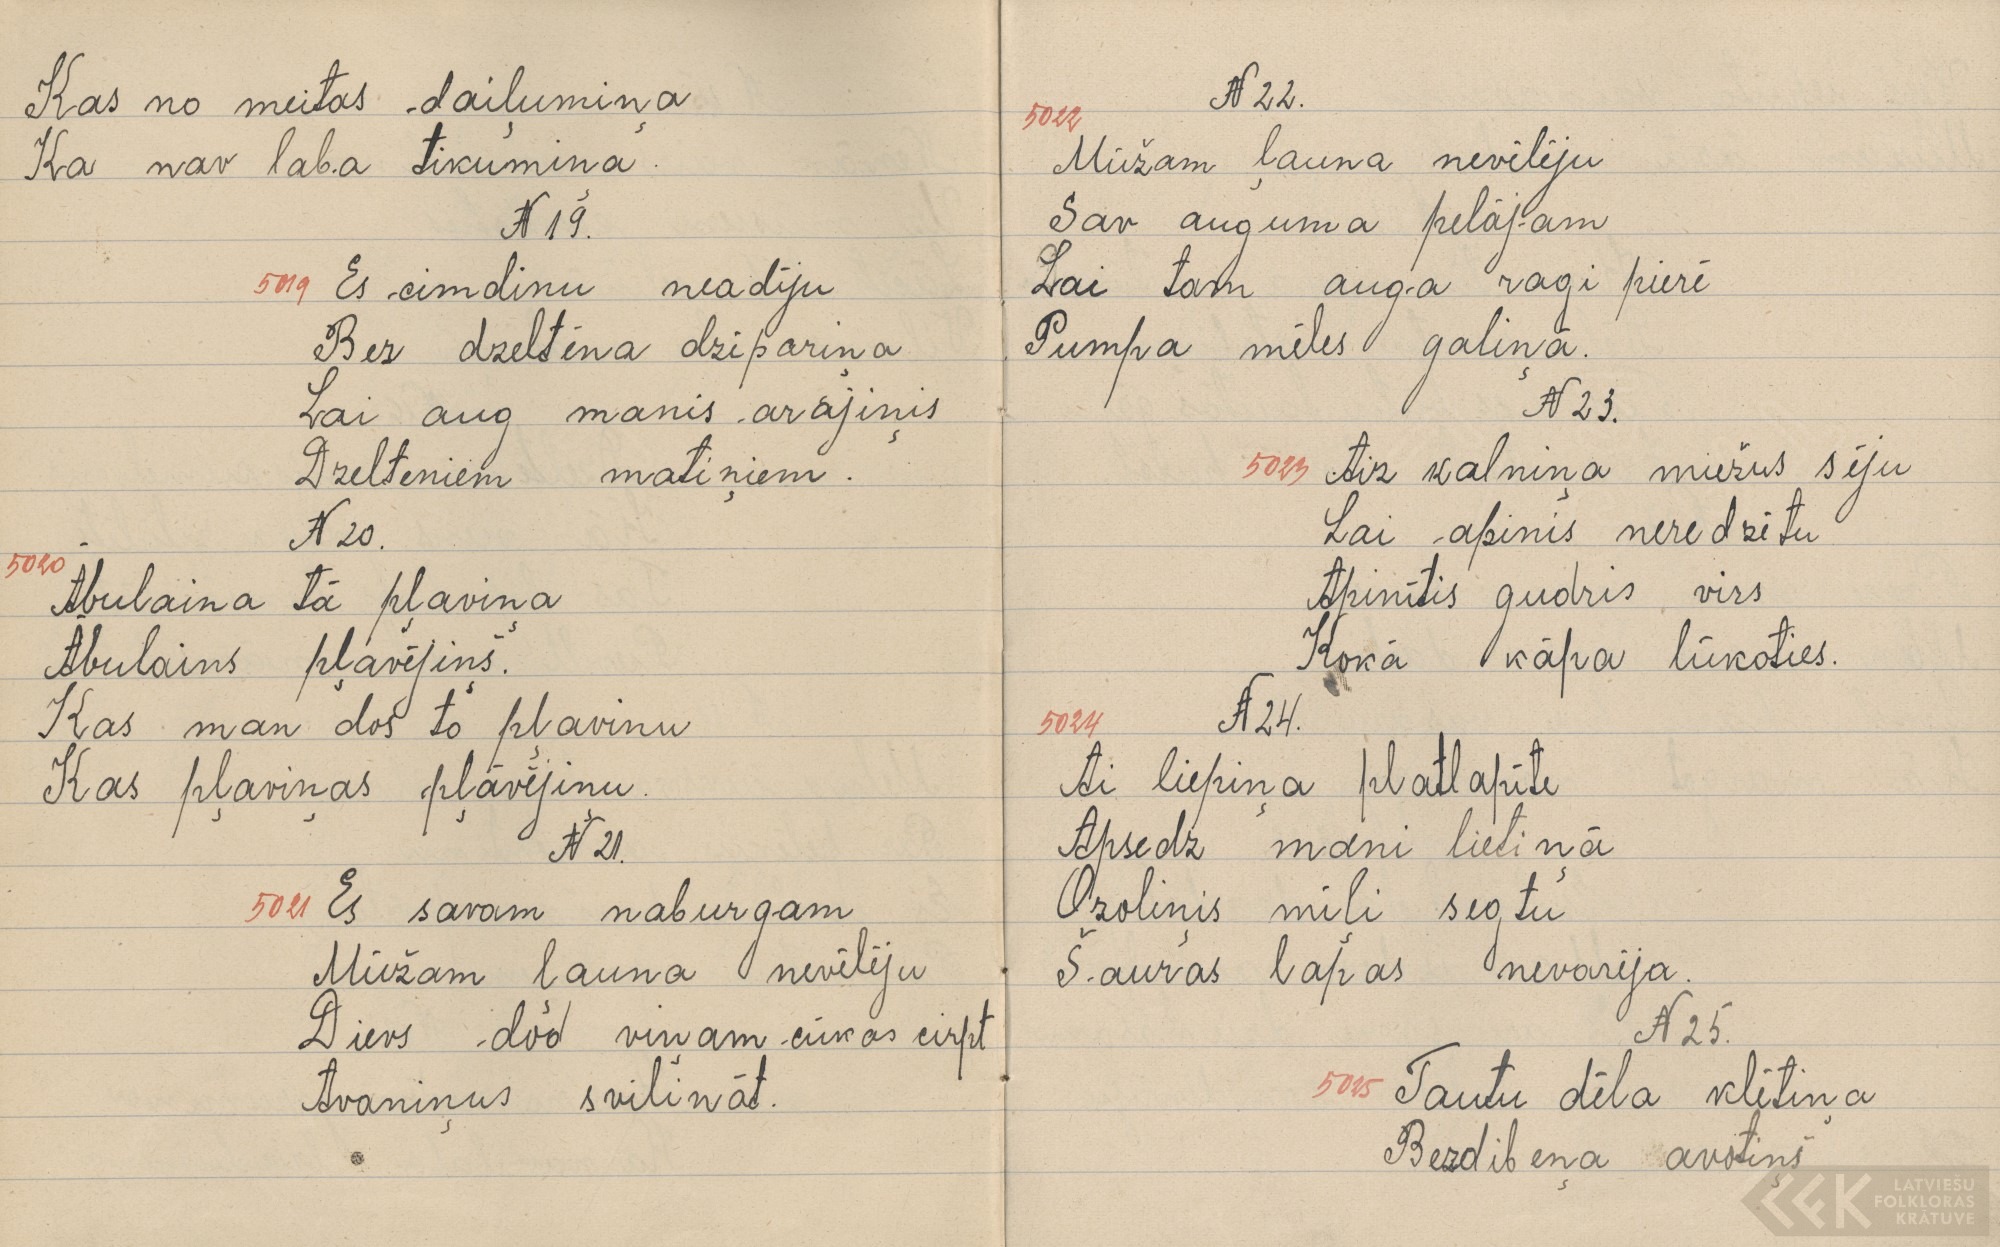 Kas no meitas daiļumiņa
Ka nav laba tikumiņa.
N 19.
5019 Es cimdinu neadīju
Bez dzeltēna dzipariņa
Lai aug manis arājiņis
Dzelteniem matiņiem.
N 20.
5020
Ābulaina tā pļaviņa
Ābulains pļavējiņš.
Kas man dos to pļavinu
Kas pļaviņas pļāvējiņu.
N 21.
5021 Es savam naburgam
Mūžam ļauna nevēlēju
Dievs dod viņam cūkas cirpt
Avaniņus svilināt.
N 22.
5022
Mūžam ļauna nevēlēju
Sav auguma pelājam
Lai tam auga ragi pierē
Pumpa mēles galiņā.
N 23.
5023 Aiz kalniņa miežus sēju
Lai apinis neredzētu
Apinītis gudris virs
Kokā kāpa lūkoties.
5024 N 24.
Ai liepiņa platlapīte
Apsedz mani lietiņā
Ozoliņis mīļi segtu
Šauras lapas nevarēja.
N 25.
5025 Tautu dēla klētiņa
Bezdibeņa avotiņš
LATVIEŠU
FOLKLORAS
KRĀTUVE